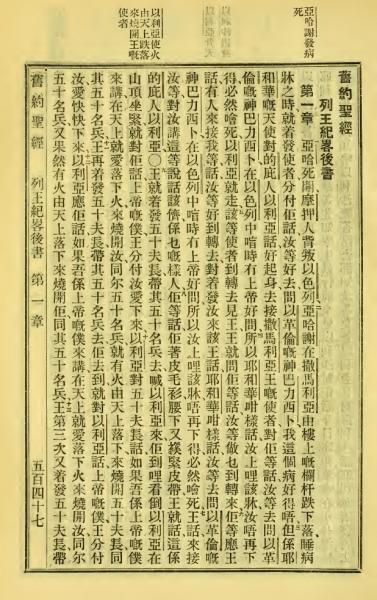 亞哈謝發病
死
以利亞使火
由天上跌落
來燒開王嘅
使者
舊約聖經
列王紀畧後書
第一章 亞哈死開摩押人背叛以色列亞哈謝在撒馬利亞由樓上嘅欄杆跌下落睡病
牀之時就着發使者分付佢話汝等好去問以革倫嘅神巴力西卜我這個病好得唔但係耶
和華嘅天使對的庇人以利亞話好起身去接撒馬利亞王嘅使者對佢等話汝等去問以革
倫嘅神巴力西卜在以色列中喧時有上帝好問所以耶和華咁樣話汝上哩該牀唔再下
得必然噲死以利亞就走該等使者到轉去見王王就問佢等話汝等做乜到轉來佢等應王
話有人來接我等話汝等好到轉去對着發汝來該王話耶和華咁樣話汝等去問以革倫嘅
神巴力西卜在以色列中喧時有上帝好問所以汝上哩該牀唔再下得必然噲死王話來接
汝等對汝講這等說話該儕係乜嘅樣人佢等話佢著皮毛衫腰下又撲緊皮帶王就話這係
的庇人以利亞〇王就着發五十夫長帶其五十名兵去喊以利亞來佢到哩看倒以利亞在
山頂坐緊就對佢話上帝嘅僕王分付汝愛下來以利亞對五十夫長話如果吾係上帝嘅僕
來講在天上就愛落下火來燒開汝同尔五十名兵就有火由天上落下來燒開五十夫長同
其五十名兵王再着發五十夫長帶其五十名兵去佢去到就對以利亞話上帝嘅僕王分付
汝愛快快下來以利亞應佢話如果吾係上帝嘅僕來講在天上就愛落下火來燒開汝同尔
五十名兵又果然有火由天上落下來燒開佢同其五十名兵王第三次又着發五十夫長帶
舊約聖經 列王紀畧後書 第一章 五百四十七